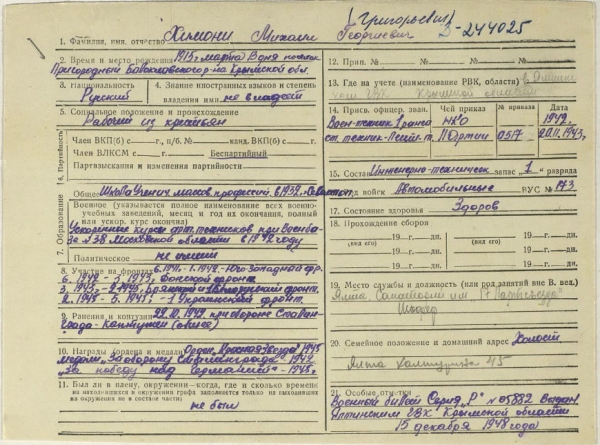 (Григорьевич)
1. Фамилия, имя, отчество Химони Михаил Георгиевич
Д-244025
2. Время и место рождения 1915 г. марта 3 дня поселок
Пригородный Балаклавского р-на Крымской обл
3. Национальность
Русский
4. Знание иностранных языков и степень
владения ими не владеет
5. Социальное положение и происхождение
Рабочий из крестьян
6. Партийность
Член ВКП(б) с г., п/б. № канд. ВКП(б) с г.
Член ВЛКСМ с Беспартийный
Партвзыскания и изменения партийности
7. Образование
Общее Школа учен. массов. профессий. в 1932,
Военное (указывается полное наименование всех военно-
учебных заведений, месяц и год их окончания, полный
или ускор. курс окончил)
Ускоренные курсы арт. техников при Военбазе
№ 38 Московской области в 1942 году
Политическое не имеет
8. Участие на фронтах 6.1941-1.1942. Юго Западной фр.
6. 1942 - 3. 1943, Донской фронт
3. 1943 - 2. 1945, Белорусский фронт.
2. 1945 - 5. 1945, - 1 Украинский фронт.
9. Ранения и контузии 22.10.1942 при обороне Сталин-
града - Контужен
10. Награды (ордена и медали) Орден „Красная Звезда" 1945
медали „За оборону Сталинграда" - 1942
„За победу над Германией" - 1945 г.
11. Был ли в плену, окружении—когда, где и сколько времени
на находившихся в окружении графа заполняется только на выходивших
из окружения не в составе части)
не был
12. Прип. №
13. Где на учете (наименование РВК, области) в Ялтинс
ком ГВК Крымской области
14. Присв. офицер. зван.
Чей приказ
№ приказа
Дата
Воен-техник 1 ранга
НКО
1942.
ст. техник-лейт-т.
0517
20.11.1943,
15. Состав Инженерно-техническ. запас „1" разряда
род войск Автомобильные ВУС № 173
17. Состояние здоровья Здоров
18. Прохождение сборов
(вид его) 19 г. дн.
(вид его) 19 г. дн.
19. Место службы и должность (или род занятий вне В. вед.)
Ялта Санаторий им.
Шофер
20. Семейное положение и домашний адрес Холост
Ялта 45
21. Особые отметки
Военной билет Серия „Р" № 05882 Выдан.
Ялтинским ГВК Крымской области
15 декабря 1948 года